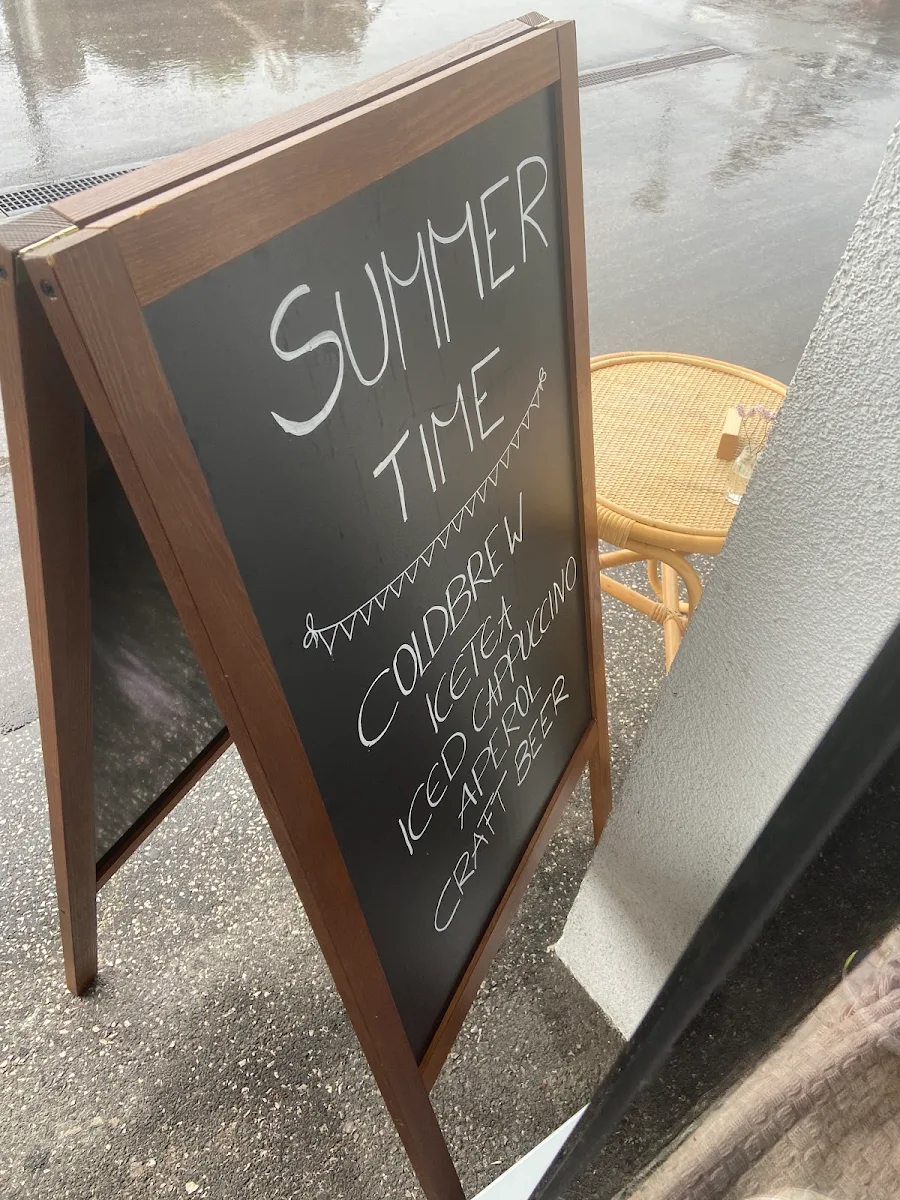 SUMMER
TIME
COLDBREW
ICETEA
ICED CAPPUCCINO
APEROL
CRAFT BEER